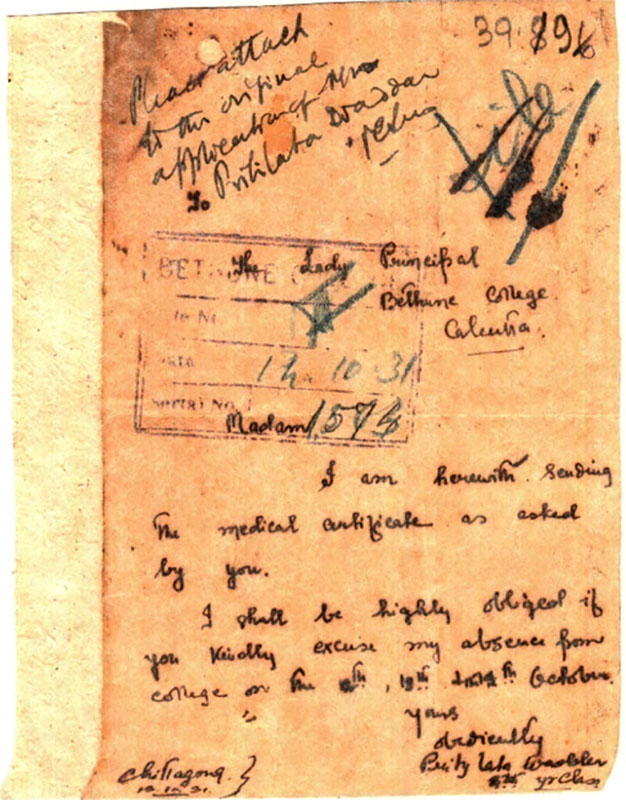 39.
Please attach
to the original
application of
Pritilata Waddar
To
The Lady Principal
BETHUNE
Bethune College.
Calcutta.
12.10.31
Serial No.
Madam
I am herewith sending
the medical certificate as asked
by you.
I shall be highly obliged if
you kindly excuse my absence from
college on the October.
Yours
obediently
Prity lata Waddar
yr Class
Chittagong.